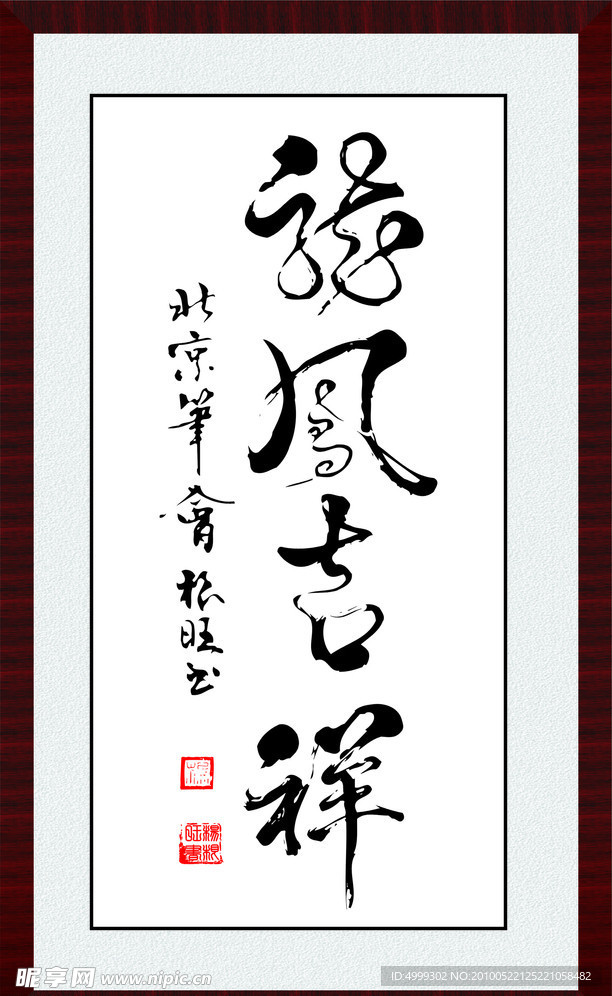 龍鳳吉祥
北京筆會根旺书
楊根旺書
昵享网 www.nipic.cn
ID:4999302 NO:20100522125221058482